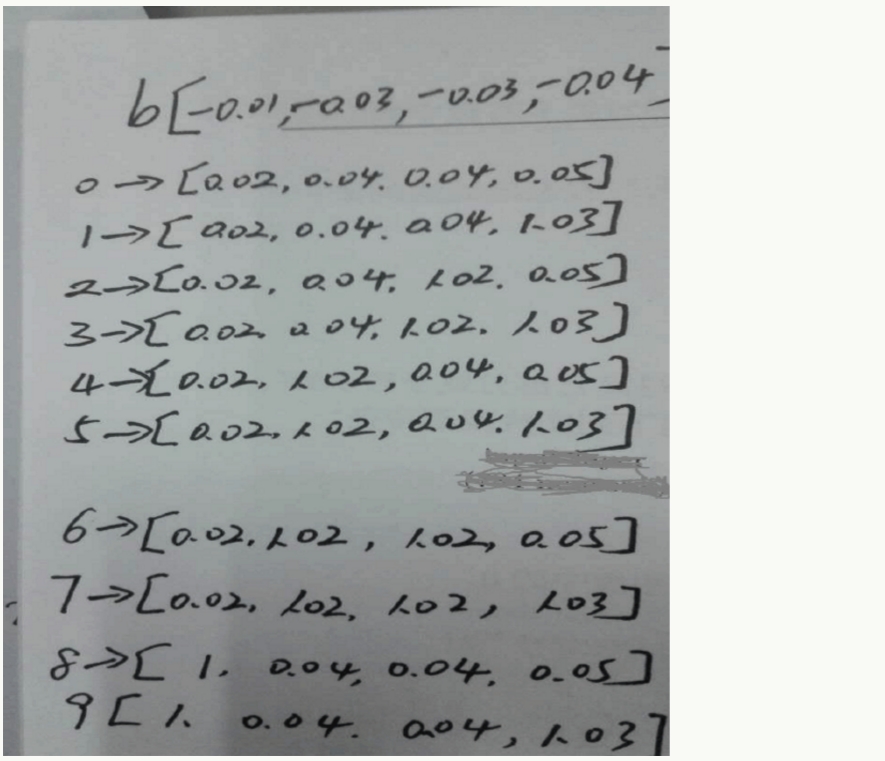 b[-0.01,-0.03,-0.03,-0.04]
0→[0.02, 0.04. 0.04, 0.05]
1→[0.02, 0.04. 0.04, 1.03]
2→[0.02, 0.04. 1.02. 0.05]
3→[0.02. 0.04. 1.02. 1.03]
4→[0.02. 1.02, 0.04. 0.05]
5→[0.02. 1.02, 0.04. 1.03]
6→[0.02. 1.02, 1.02, 0.05]
7→[0.02. 1.02. 1.02, 1.03]
8→[1. 0.04, 0.04. 0.05]
9[1. 0.04. 0.04, 1.03]